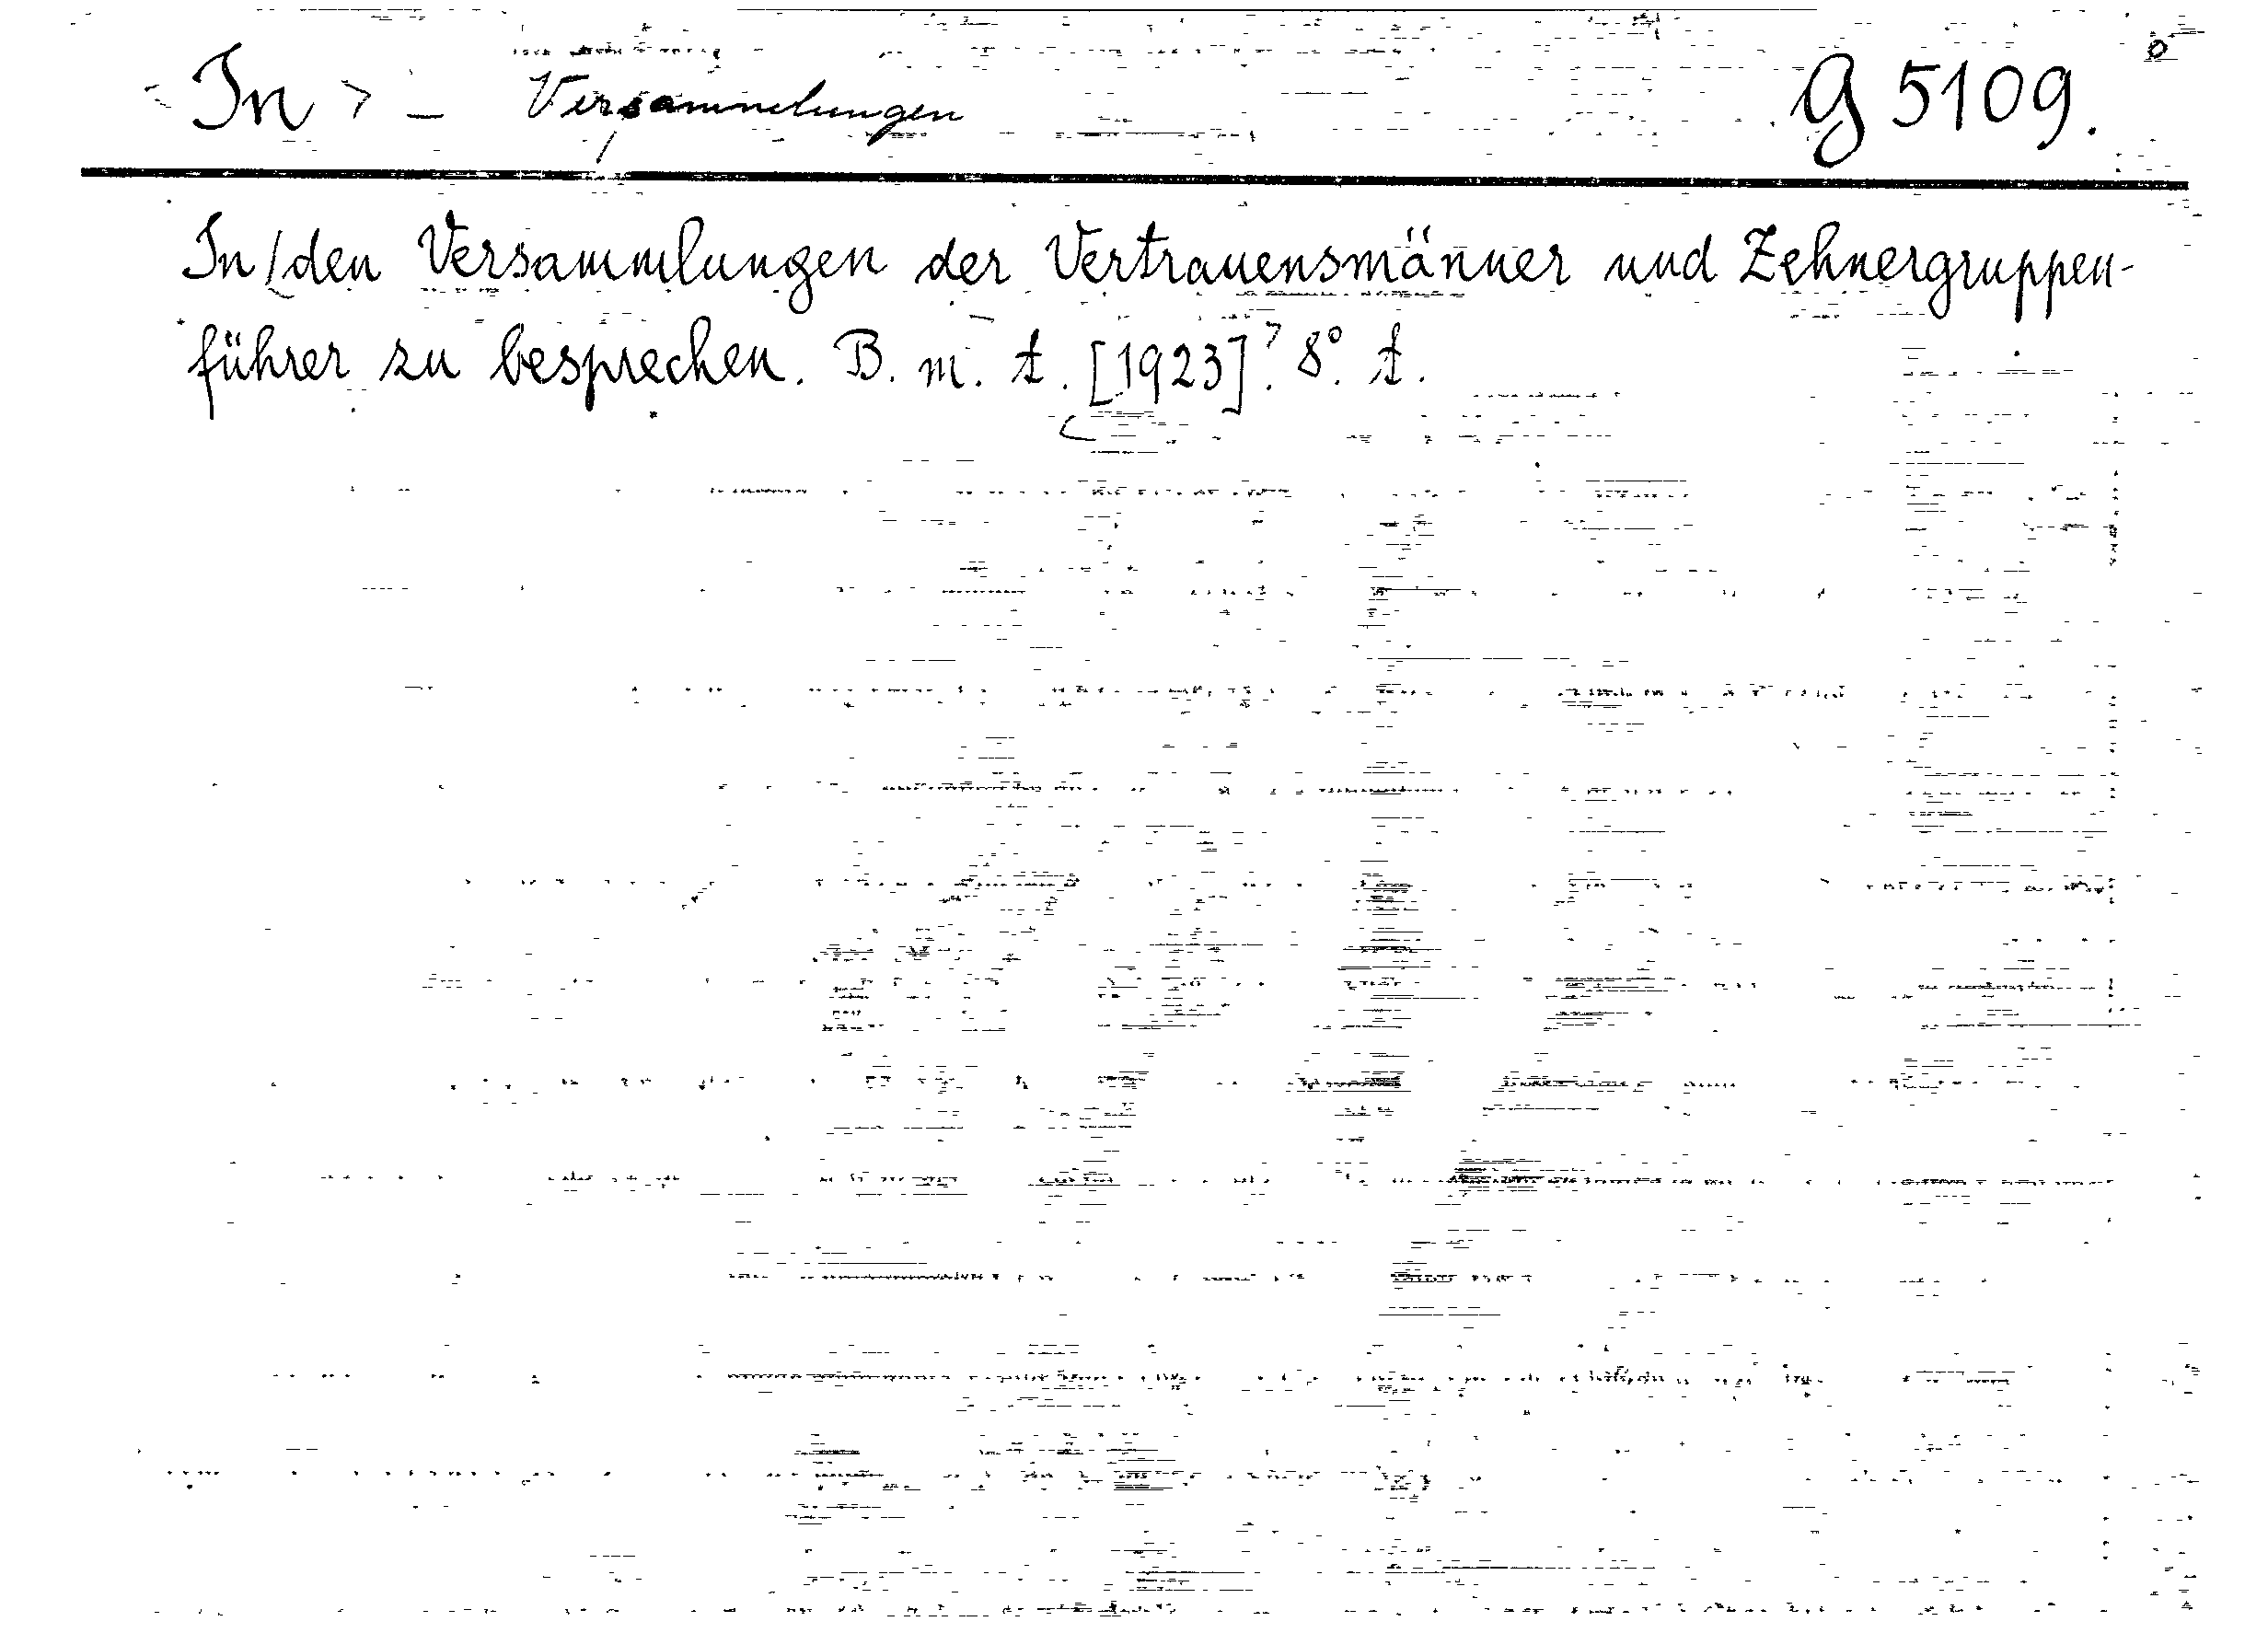 In - Versammlungen G 5109.
In den Versammlungen der Vertrauensmänner und Zehnergruppen-
führer zu besprechen. B. m. t. [1923]. 8° t.